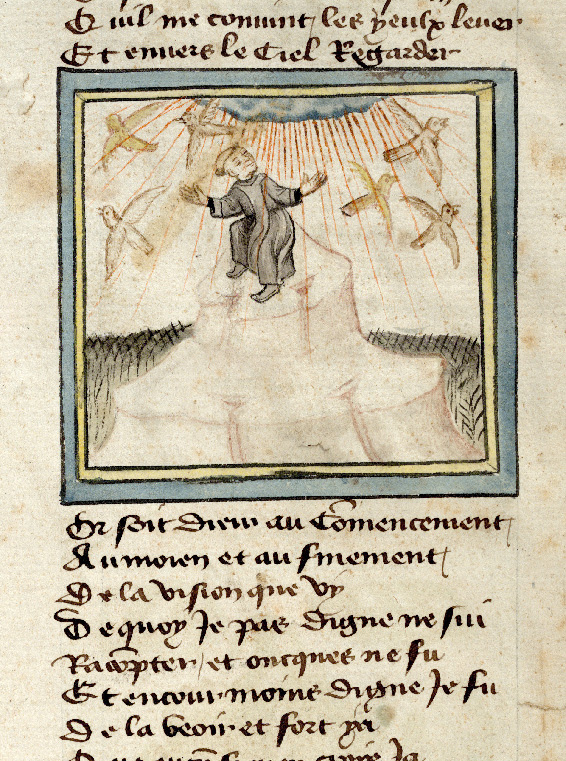 Quil me convint les yeulx lever
Et envers le Ciel Regarder
Or soit dieu au Comencement
Au moien et au finement
De la vision que vy
De quoy Je pas digne ne sui
Racopter et oncques ne fu
Et encour moins digne Je fu
De la veoir et fort